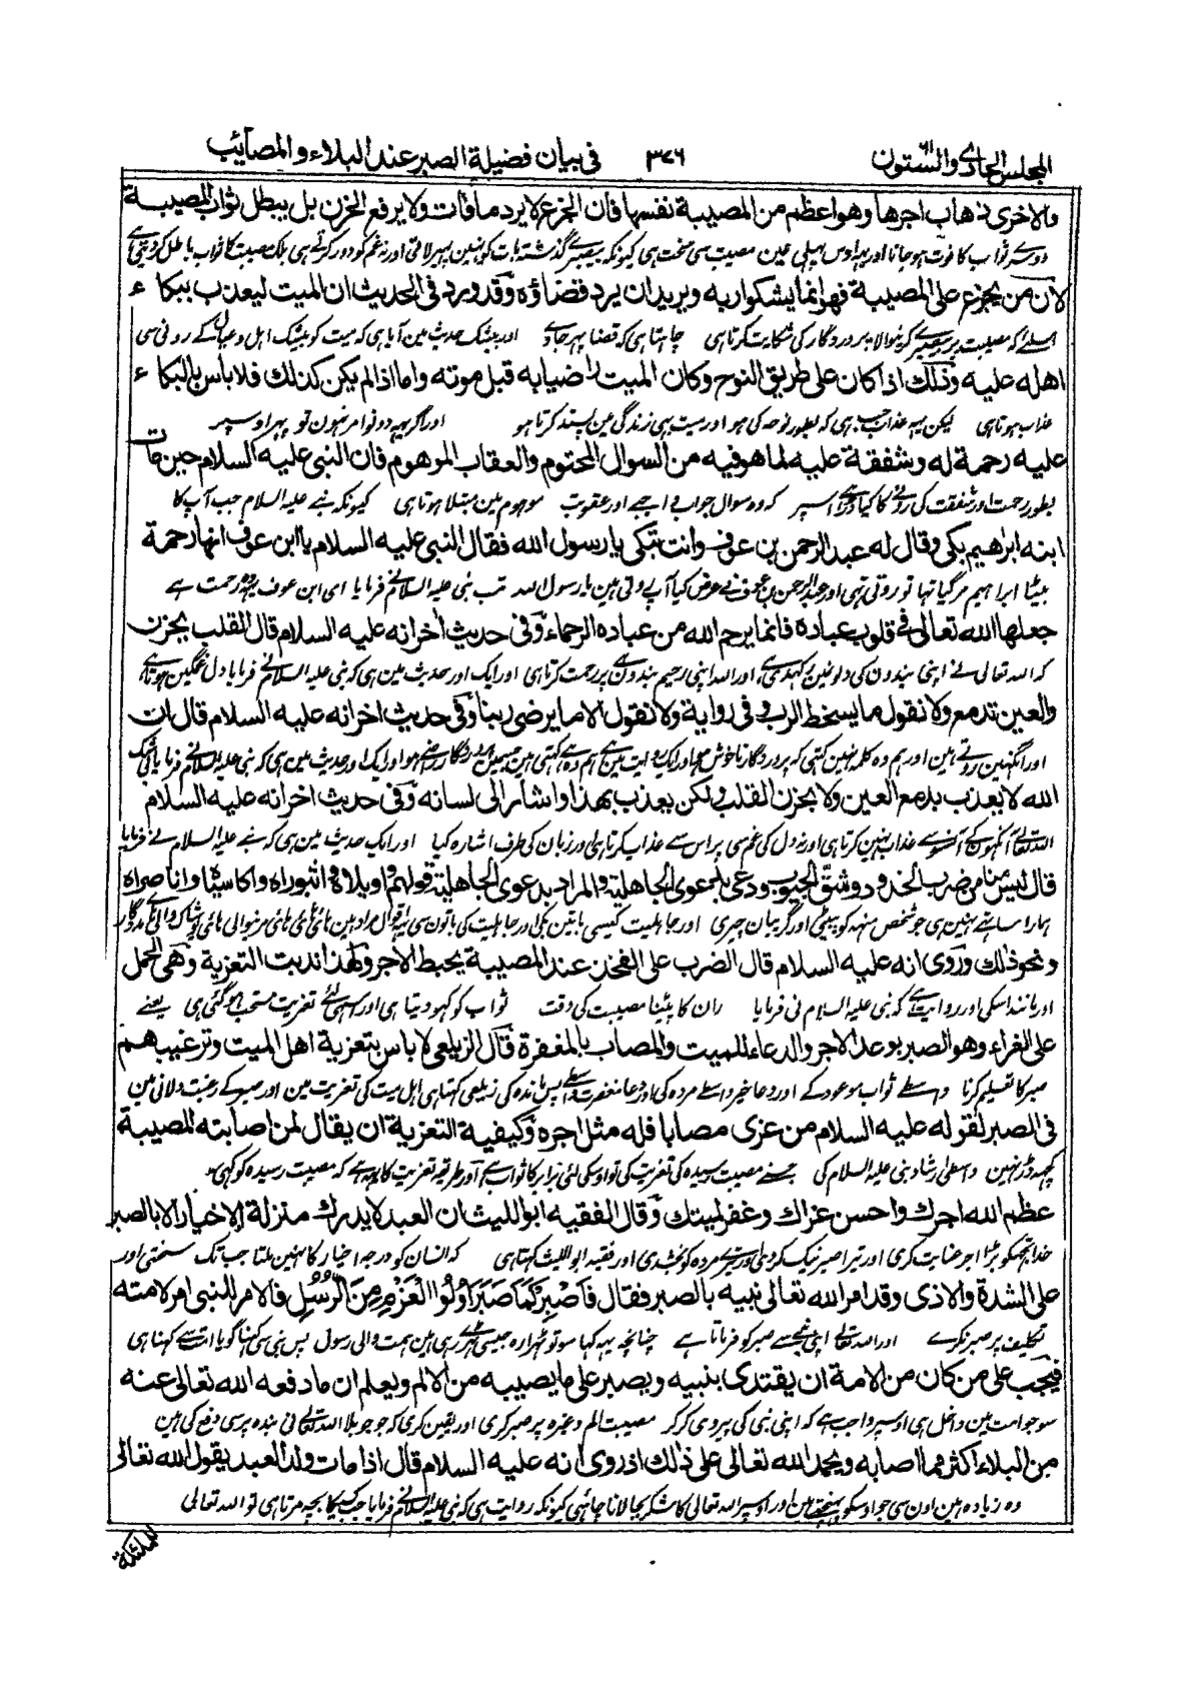 المجلس الحادى والستون ٣٧٦ فى بيان فضيلة الصبر عند البلاء والمصائب
والاخرى ذهاب اجرها وهو اعظم من المصيبة نفسها فان الجزع لا يرد ما فات ولا يرفع الحزن بل يبطل ثواب المصيبة
دوسرے ثواب کا فوت ہوجانا اور یہہ اوس پہلی عین مصیبت سی سخت ہی کیونکہ بیصبری گذشتہ بات کو نہین پہیر لاتی اور نہ غم کو دور کرتی ہی بلکہ مصیبت کا ثواب باطل کر دیتی ہے
لان من يجزع على المصيبة فهو انما يشكو ربه ويريد ان يرد قضاؤه وقد ورد فى الحديث ان الميت ليعذب ببكاء
اسلئے کہ مصیبت پر بیصبری کرنیوالا پروردگار کی شکایت کرتا ہی چاہتا ہی کہ قضا پہر جاوے اور بیشک حدیث مین آیا ہی کہ میت کو بیشک اہل و عیال کے رونی سی
اهله عليه وذلك اذا كان على طريق النوح وكان الميت راضيا به قبل موته واما اذا لم يكن كذلك فلا باس بالبكاء
عذاب ہوتا ہی لیکن یہہ عذاب جب ہی کہ بطور نوحہ کی ہو اور میت بہی زندگی مین پسند کرتا ہو اور اگر یہہ دونوا مر نہون تو پہر اوسپر
عليه رحمة له وشفقة عليه لما هو فيه من السوال المحتوم والعقاب الموهوم فان النبى عليه السلام حين مات
بطور رحمت اور شفقت کی رونے کا کیا ڈر ہے اسپر کہ وہ سوال جواب واجبے اور عقوبت موہوم مین مبتلا ہوتا ہی کیونکہ نبے علیہ السلام جب آپ کا
ابنه ابرهيم بكى وقال له عبد الرحمن بن عوف وانت تبكى يا رسول الله فقال النبى عليه السلام يا ابن عوف انها رحمة
بیٹا ابراہیم مرگیا تہا تو روتی تہی اور عبدالرحمن بن عوف نے عرض کیا آپ روتی ہین یا رسول اللہ تب نبی علیہ السلام نے فرمایا ای ابن عوف یہہ رحمت ہے
جعلها الله تعالى فى قلوب عباده فانما يرحم الله من عباده الرحماء وفى حديث اخر انه عليه السلام قال القلب يحزن
کہ اللہ تعالی نے اپنی بندون کی دلونمین رکہدی ہے اور اللہ اپنی رحیم بندون پر رحمت کرتا ہی اور ایک اور حدیث مین ہی کہ نبی علیہ السلام نے فرمایا دل غمگین ہوتا ہے
والعين تدمع ولا نقول ما يسخط الرب وفى رواية ولا نقول الا ما يرضى ربنا وفى حديث اخر انه عليه السلام قال ان
اور انکہین روتے ہین اور ہم وہ کلمہ نہین کہتی کہ پروردگار ناخوش ہو اور ایک روایت مین ہے ہم وہ ہی کہتی ہین جسمین پروردگار راضی ہو اور ایک اور حدیث مین ہی کہ نبی علیہ السلام نے فرمایا بیشک
الله لا يعذب بدمع العين ولا بحزن القلب ولكن يعذب بهذا واشار الى لسانه وفى حديث اخر انه عليه السلام
اللہ تعالے آنکہون کے آنسو سے عذاب نہین کرتا ہی اور نہ دل کی غم سی پر اس سے عذاب کرتا ہی اور زبان کی طرف اشارہ کیا اور ایک حدیث مین ہی کہ نبے علیہ السلام نے فرمایا
قال ليس منا من ضرب الخدود وشق الجيوب ودعى بدعوى الجاهلية والمراد بدعوى الجاهلية قولهم واويلاه واثبوراه واكاسياه واناصراه
ہمارا ساتہے نہین ہی جو شخص منہہ کو پیٹے اور گریبان چیری اور جاہلیت کیسی باتین بکی اور جاہلیت کی باتون سی یہہ اقوال مراد ہین ہائی ہائی
ونحو ذلك وروى انه عليه السلام قال الضرب على الفخذ عند المصيبة يحبط الاجر ولهذا ندبت التعزية وهى الحمل
اور مانند اسکی اور روایت ہے کہ نبی علیہ السلام نی فرمایا ران کا پیٹنا مصیبت کی وقت ثواب کو کہو دیتا ہی اور اسی لئے تعزیت مستحب ہوگئی ہی یعنے
على العزاء وهو الصبر بوعد الاجر والدعاء للميت والمصاب بالمغفرة قال الزيلعى لا باس بتعزية اهل الميت وترغيبهم
صبر کا تعلیم کرنا واسطے ثواب موعود کے اور دعا خیر واسطے مردہ کی اور دعا مغفرت واسطے پس ماندہ کی زیلعی کہتا ہی اہل میت کی تعزیت مین اور صبر کے رغبت دلانی مین
فى الصبر لقوله عليه السلام من عزى مصابا فله مثل اجره وكيفية التعزية ان يقال لمن اصابته المصيبة
کچہہ ڈر نہین واسطی ارشاد نبی علیہ السلام کی جسنے مصیبت رسیدہ کی تعزیت کی تو اوسکی لئی برابر کا ثواب ہے اور طریقہ تعزیت کا یہہ ہے کہ مصیبت رسیدہ کو کہی
عظم الله اجرك واحسن عزاك وغفر لميتك وقال الفقيه ابو الليث ان العبد لا يدرك منزلة الاخيار الا بالصبر
خدا تجہکو بڑا اجر عنایت کری اور تیرا صبر نیک کر دی اور تیرے مردہ کو بخشدی اور فقیہ ابو اللیث کہتا ہی کہ انسان کو درجہ اخیار کا نہین ملتا جب تک سختی اور
على الشدة والاذى وقد امر الله تعالى نبيه بالصبر فقال فَاصْبِرْ كَمَا صَبَرَ اُولُوا الْعَزْمِ مِنَ الرُّسُلِ فالامر للنبى امر لامته
تکلیف پر صبر نکرے اور اللہ تعالے اپنی نبی سے صبر کو فرماتا ہے چنانچہ یہہ کہا سو تو ٹہرا رہ جیسی ٹہری رہی ہین ہمت والی رسول پس نبی سی کہنا گویا امت سے کہنا ہی
فيجب على من كان من الامة ان يقتدى بنبيه ويصبر على ما يصيبه من الالم ويعلم ان ما دفعه الله تعالى عنه
سو جو امت مین داخل ہی اوسپر واجب ہے کہ اپنی نبی کی پیروی کرکر مصیبت الم وغیرہ پر صبر کری اور یقین کری کہ جو جو بلا اللہ تعالے نی بندہ پر سی دفع کی ہین
من البلاء اكثر مما اصابه ويحمد الله تعالى على ذلك اذ روى انه عليه السلام قال اذا مات ولد العبد يقول الله تعالى
وہ زیادہ ہین اون سی جو اوسکو پہنچتے ہین اور اوسپر اللہ تعالی کا شکر بجا لانا چاہئی کیونکہ روایت ہی کہ نبی علیہ السلام نے فرمایا جب کسیکا بچہ مرتا ہی تو اللہ تعالی
لملئكة